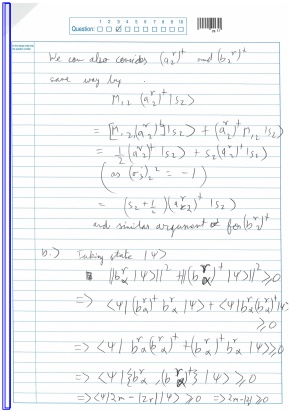 Question: 1 2 3 4 5 6 7 8 9 10
We can also consider (a₂ʳ)† and (b₂ʳ)†
same way by .
M₁₂ (a₂ʳ)† |s₂⟩
= [M₁₂, (a₂ʳ)†]|s₂⟩ + (a₂ʳ)† M₁₂ |s₂⟩
= ½ (a₂ʳ)† |s₂⟩ + s₂ (a₂ʳ)† |s₂⟩
(as (σ₃)₂² = -1)
= (s₂ + ½)(a₂ʳ)† |s₂⟩
and similar argument for (b₂ʳ)†
b.) Taking state |ψ⟩
||b_αʳ |ψ⟩||² + ||(b_αʳ)† |ψ⟩||² ≥ 0
=> ⟨ψ| (b_αʳ)† b_αʳ |ψ⟩ + ⟨ψ| b_αʳ (b_αʳ)† |ψ⟩
≥ 0
=> ⟨ψ| b_αʳ (b_αʳ)† + (b_αʳ)† b_αʳ |ψ⟩ ≥ 0
=> ⟨ψ| {b_αʳ, (b_αʳ)†} |ψ⟩ ≥ 0
=> ⟨ψ| 2m - |Zr| |ψ⟩ ≥ 0 =>